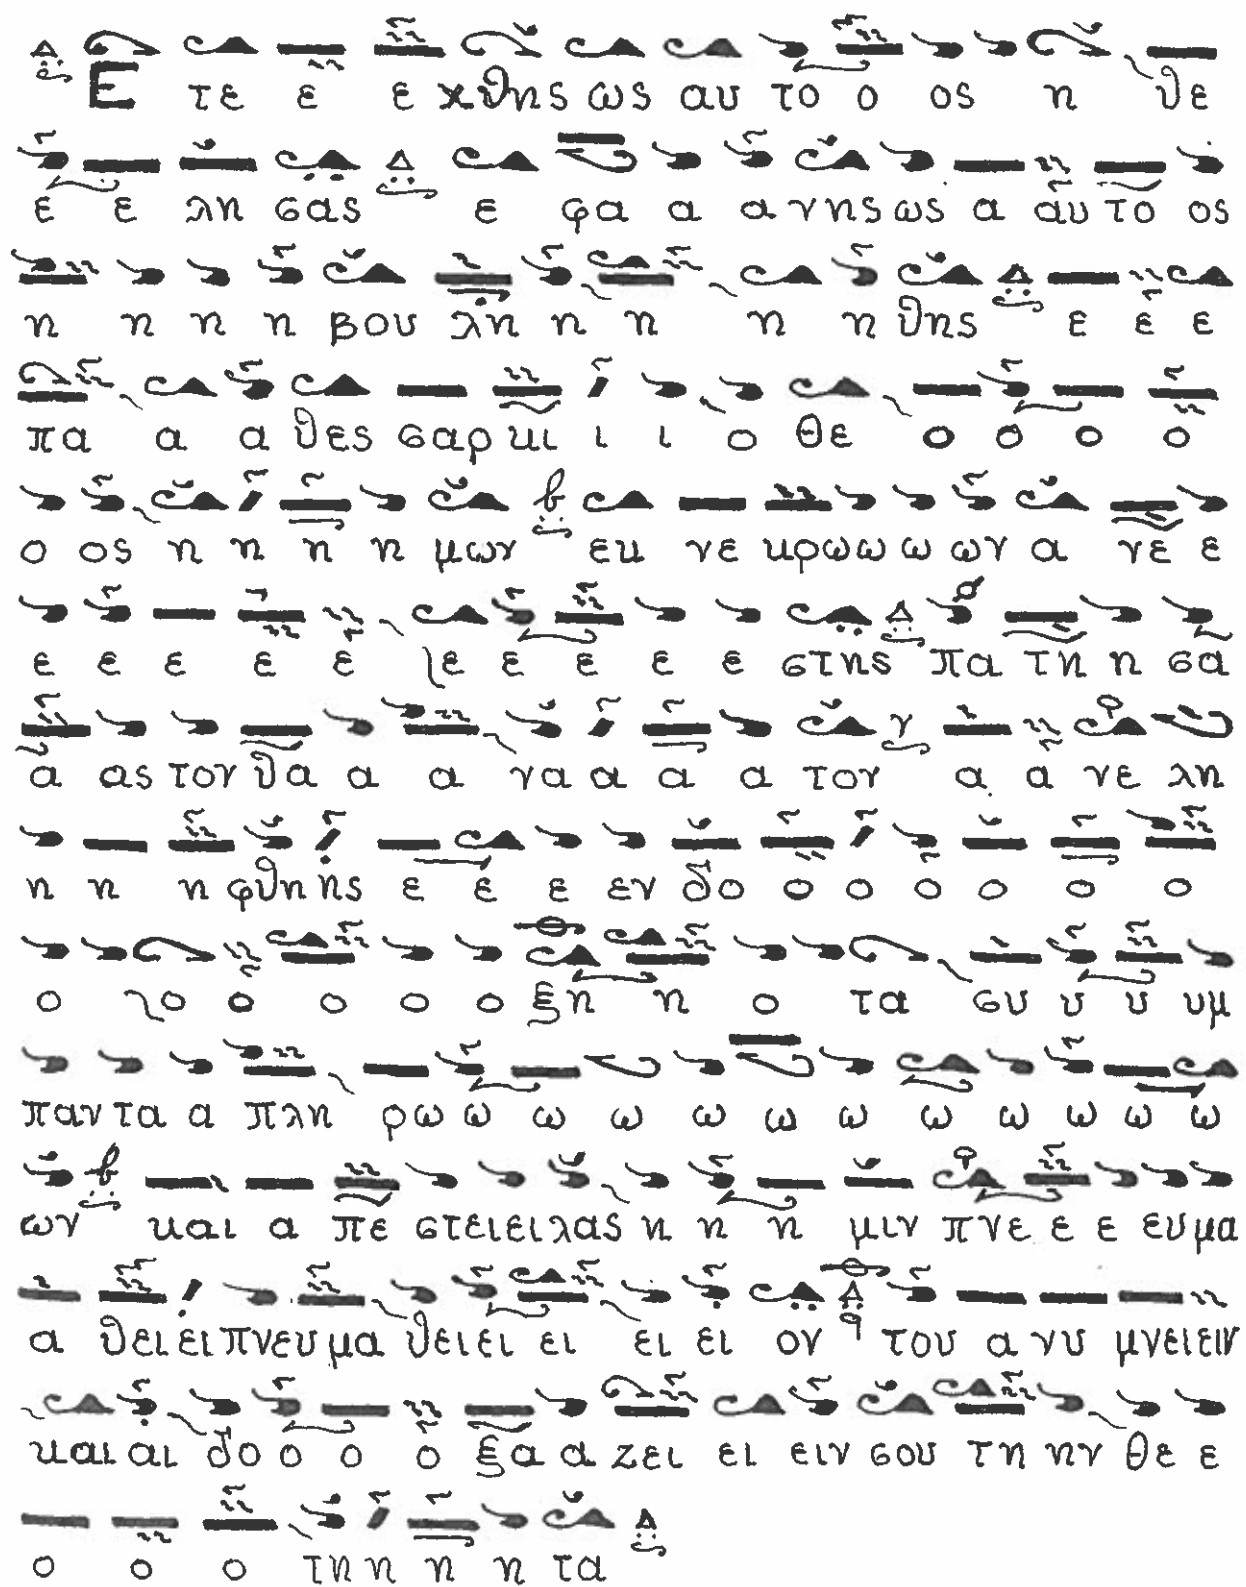 Ε τε ε ε χθης ως αυ το ο ος η θε
ε ε λη σας ε φα α α νης ως α αυ το ος
η η η η βου λη η η η η θης ε ε ε
πα α α θες σαρ κι ι ι ο θε ο ο ο ο
ο ος η η η η μων εκ νε κρω ω ω ων α νε ε
ε ε ε ε ε λε ε ε ε ε στης πα τη η σα
α ας τον θα α α να α α α τον α α νε λη
η η η φθη ης ε ε ε εν δο ο ο ο ο ο ο
ο λο ο ο ο ο ξη η ο τα συ υ υ υμ
παν τα α πλη ρω ω ω ω ω ω ω ω ω ω ω
ων και α πε στει ει λας η η η μιν πνε ε ε ευ μα
α θει ει πνευ μα θει ει ει ει ει ον του α νυ μνει ειν
και αι δο ο ο ο ξα α ζει ει ειν σου τη ην θε ε
ο ο ο τη η η η τα